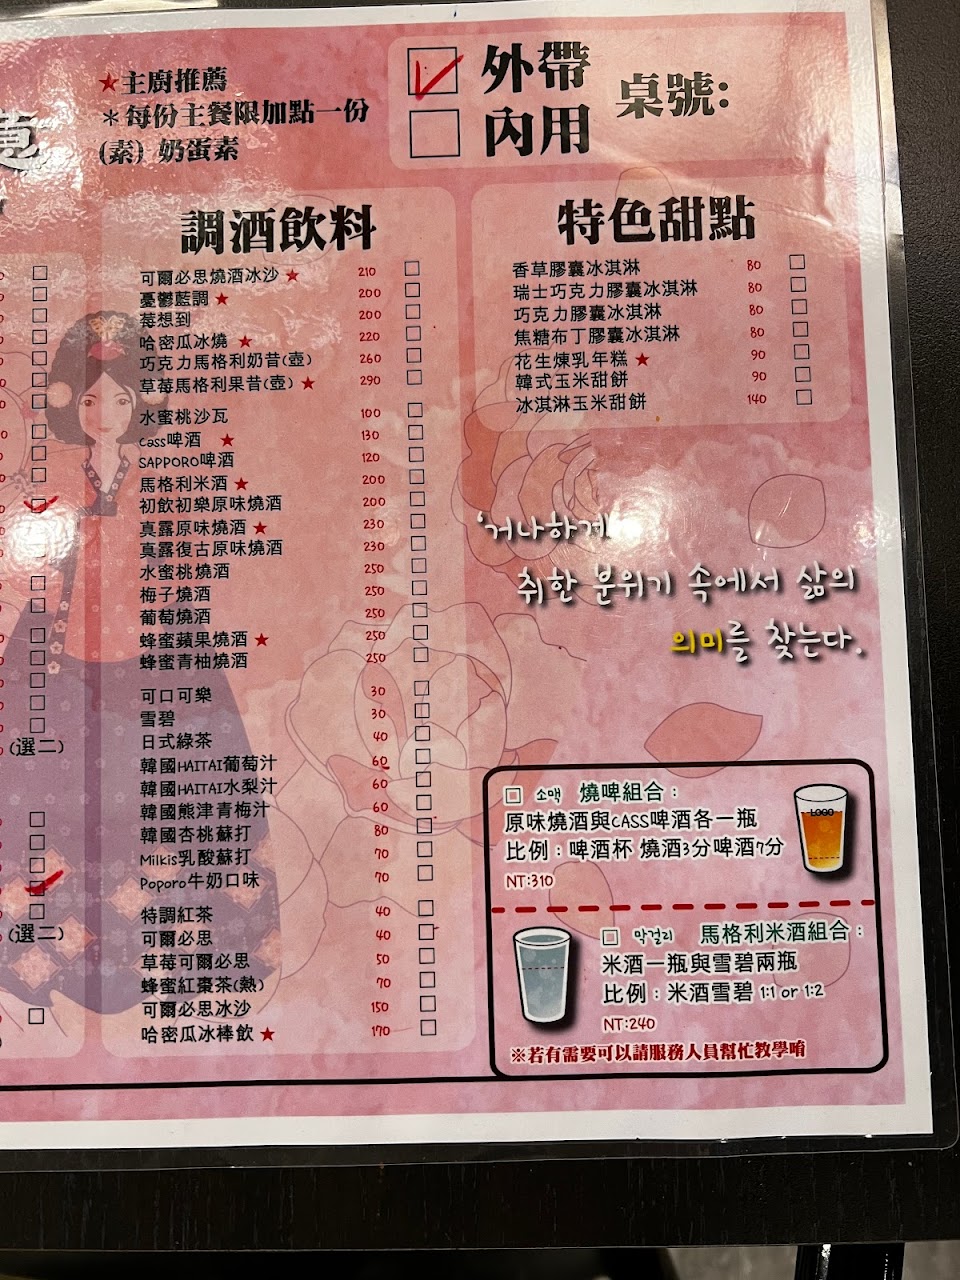 ★主廚推薦
＊每份主餐限加點一份
(素) 奶蛋素
外帶
內用
桌號:
意
調酒飲料
可爾必思燒酒冰沙 ★ 210
憂鬱藍調 ★ 200
莓想到 200
哈密瓜冰燒 ★ 220
巧克力馬格利奶昔(壺) 260
草莓馬格利果昔(壺) ★ 290
水蜜桃沙瓦 100
Cass啤酒 ★ 130
SAPPORO啤酒 120
馬格利米酒 ★ 200
初飲初樂原味燒酒 200
真露原味燒酒 ★ 230
真露復古原味燒酒 230
水蜜桃燒酒 250
梅子燒酒 250
葡萄燒酒 250
蜂蜜蘋果燒酒 ★ 250
蜂蜜青柚燒酒 250
可口可樂 30
雪碧 30
日式綠茶 40
韓國HAITAI葡萄汁 60
韓國HAITAI水梨汁 60
韓國熊津青梅汁 60
韓國杏桃蘇打 80
Milkis乳酸蘇打 70
Poporo牛奶口味 70
特調紅茶 40
可爾必思 40
草莓可爾必思 50
蜂蜜紅棗茶(熱) 70
可爾必思冰沙 150
哈密瓜冰棒飲 ★ 170
(選二)
(選二)
特色甜點
香草膠囊冰淇淋 80
瑞士巧克力膠囊冰淇淋 80
巧克力膠囊冰淇淋 80
焦糖布丁膠囊冰淇淋 80
花生煉乳年糕 ★ 90
韓式玉米甜餅 90
冰淇淋玉米甜餅 140
'거나하게'
취한 분위기 속에서 삶의
의미를 찾는다.
소맥 燒啤組合：
原味燒酒與CASS啤酒各一瓶
比例：啤酒杯 燒酒3分啤酒7分
NT:310
LOGO
막걸리 馬格利米酒組合：
米酒一瓶與雪碧兩瓶
比例：米酒雪碧 1:1 or 1:2
NT:240
※若有需要可以請服務人員幫忙教學唷